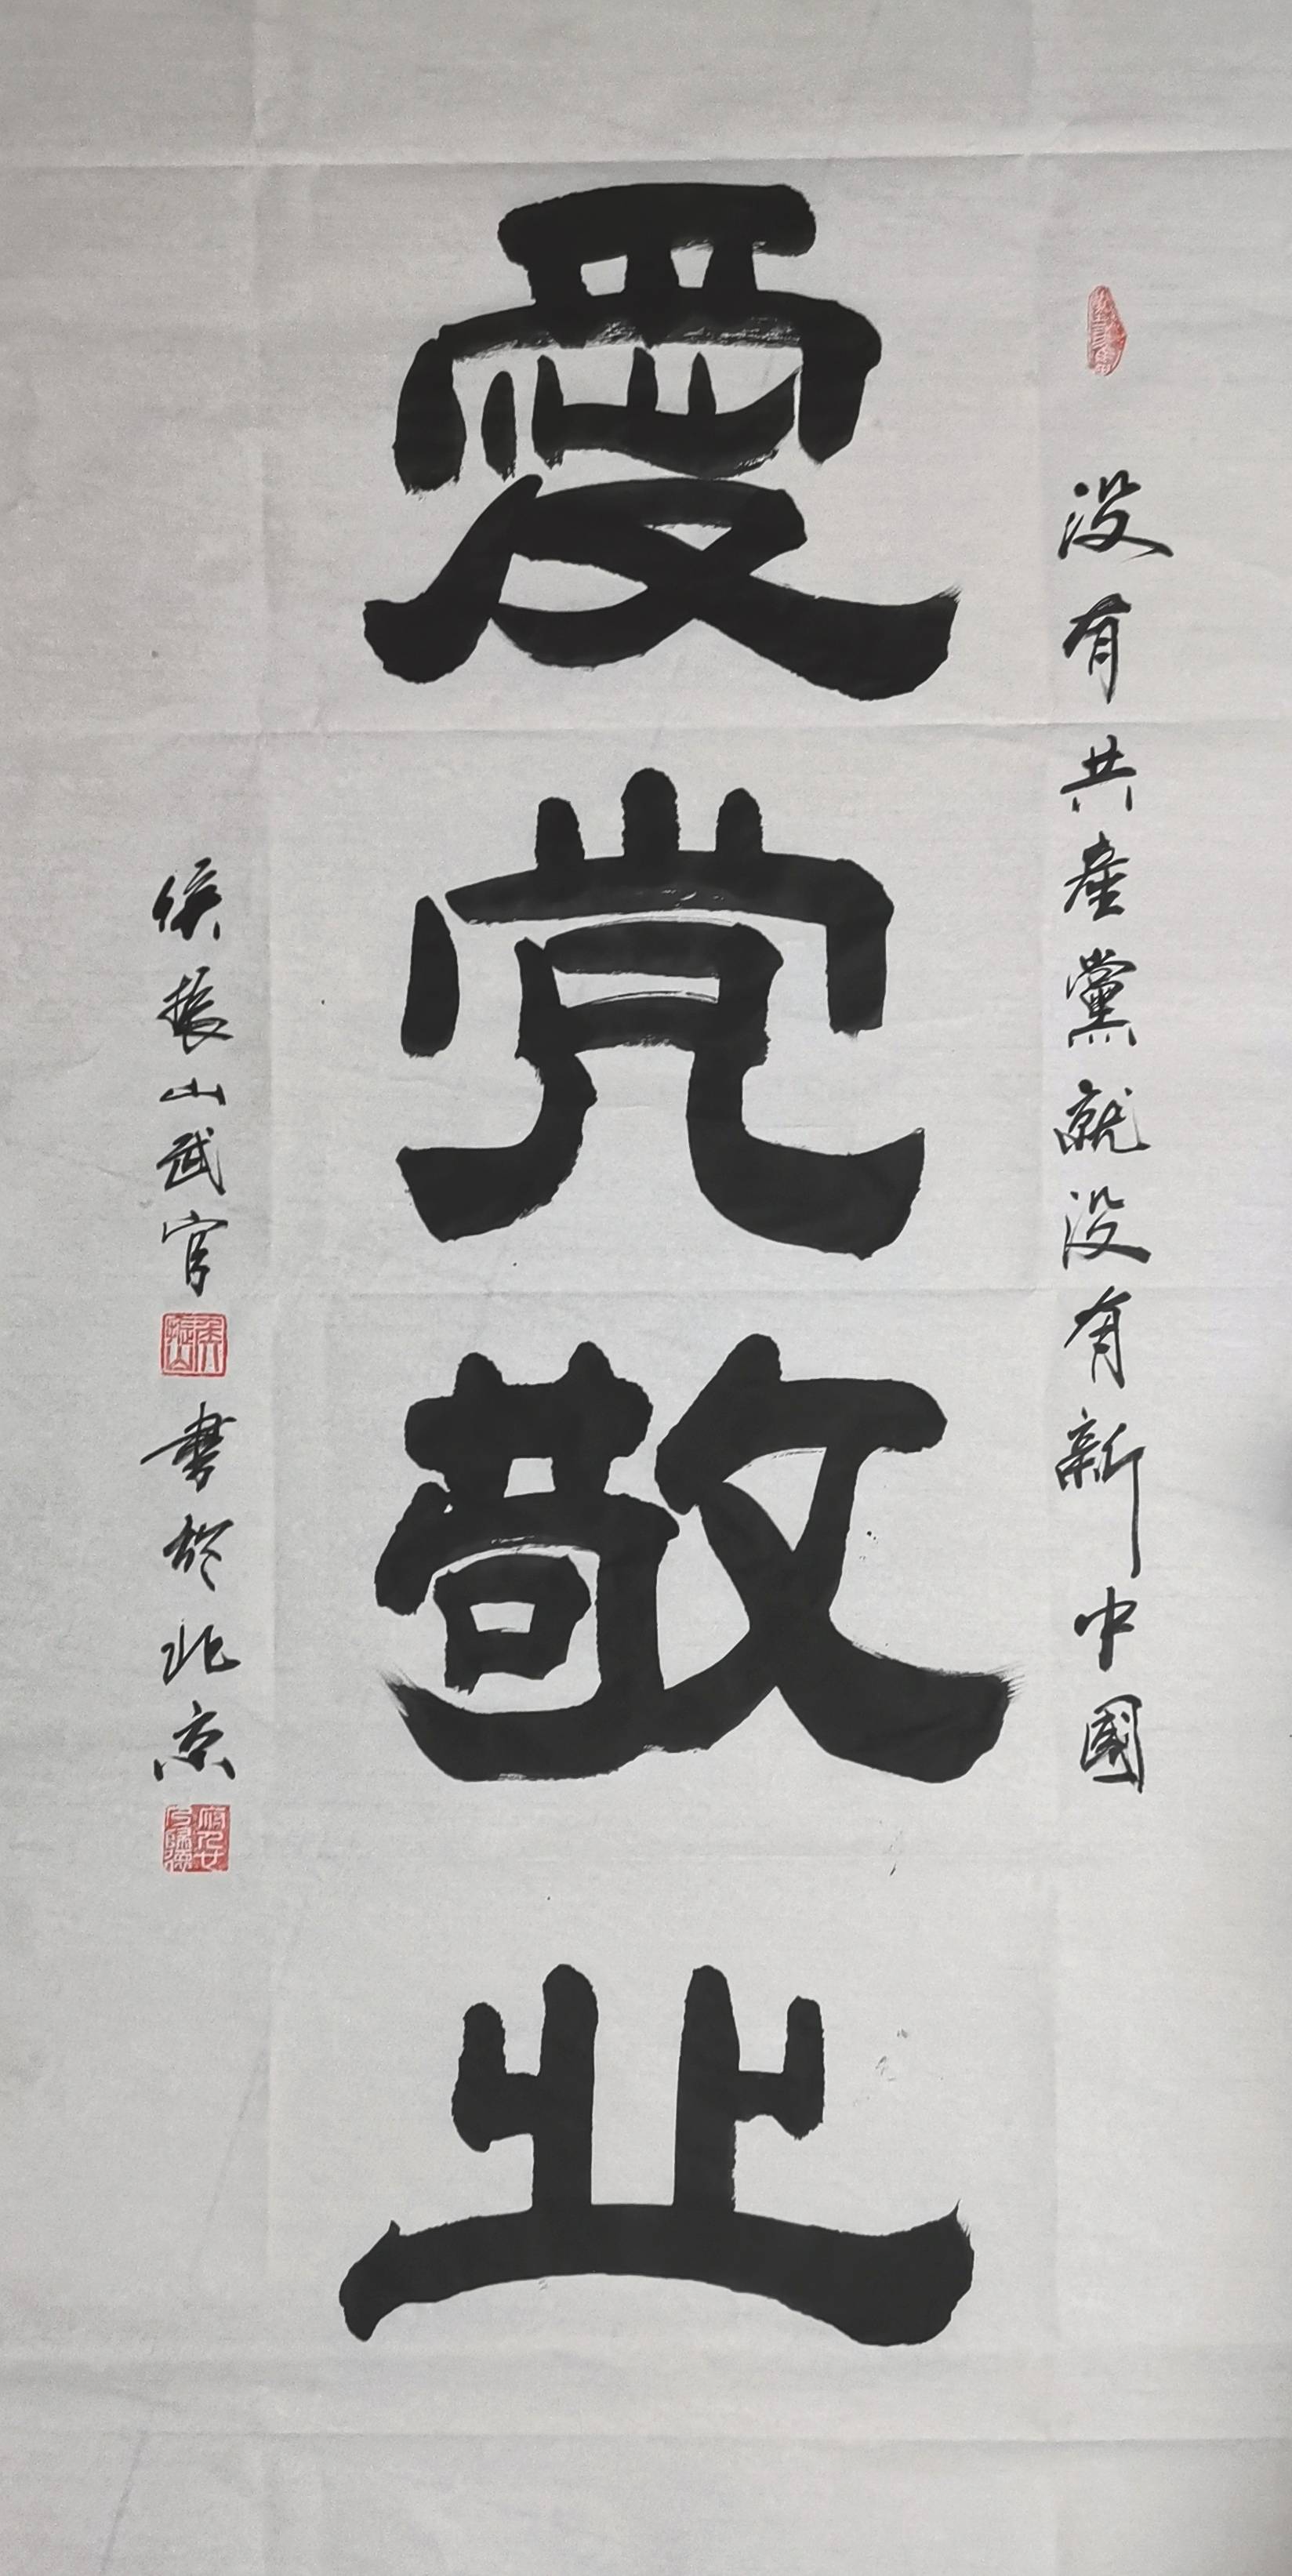 没有共產黨就没有新中國
愛党敬业
侯振山武官
侯振山
書於北京